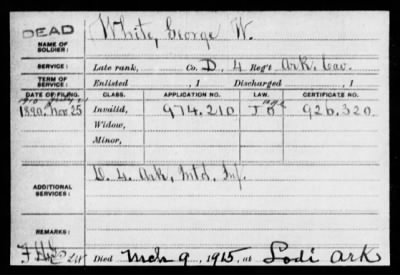 DEAD
NAME OF SOLDIER: White, George W.
SERVICE: Late rank, Co. D, 4 Reg't Ark. Cav.
TERM OF SERVICE: Enlisted , 1 Discharged , 1
DATE OF FILING. CLASS. APPLICATION NO. LAW. CERTIFICATE NO.
1890. Nov 25 Invalid, 974.210 926.320
Widow,
Minor,
ADDITIONAL SERVICES: D. 4. Ark. Mtd. Inf.
REMARKS:
Died Mch 9, 1915, at Lodi Ark